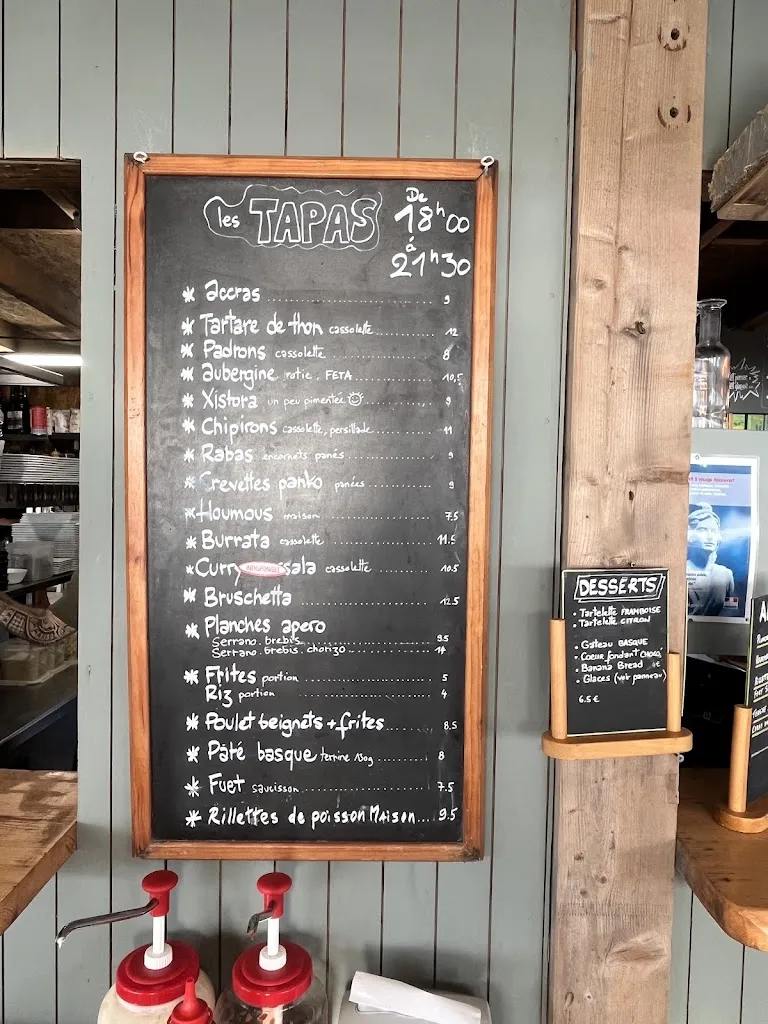 les TAPAS
De
18h00
à
21h30
* accras .......... 9
* Tartare de thon cassolette .......... 12
* Padrons cassolette .......... 8
* aubergine rotie . FETA .......... 10,5
* Xistora un peu pimentée .......... 9
* Chipirons cassolette, persillade .......... 11
* Rabas encornets panés .......... 9
* Crevettes panko panées .......... 9
* Houmous maison .......... 7.5
* Burrata cassolette .......... 11.5
* Curry sala cassolette .......... 10.5
* Bruschetta .......... 12.5
* Planches apero
Serrano. brebis .......... 9.5
Serrano. brebis. chorizo .......... 14
* Frites portion .......... 5
Riz portion .......... 4
* Poulet beignets + frites .......... 8.5
* Pâté basque terrine 130g .......... 8
* Fuet saucisson .......... 7.5
* Rillettes de poisson Maison .......... 9.5
DESSERTS
- Tartelette FRAMBOISE
- Tartelette CITRON
- Gateau BASQUE
- Coeur fondant CHOCO
- Banana Bread
- Glaces (voir panneau)
6.5 €